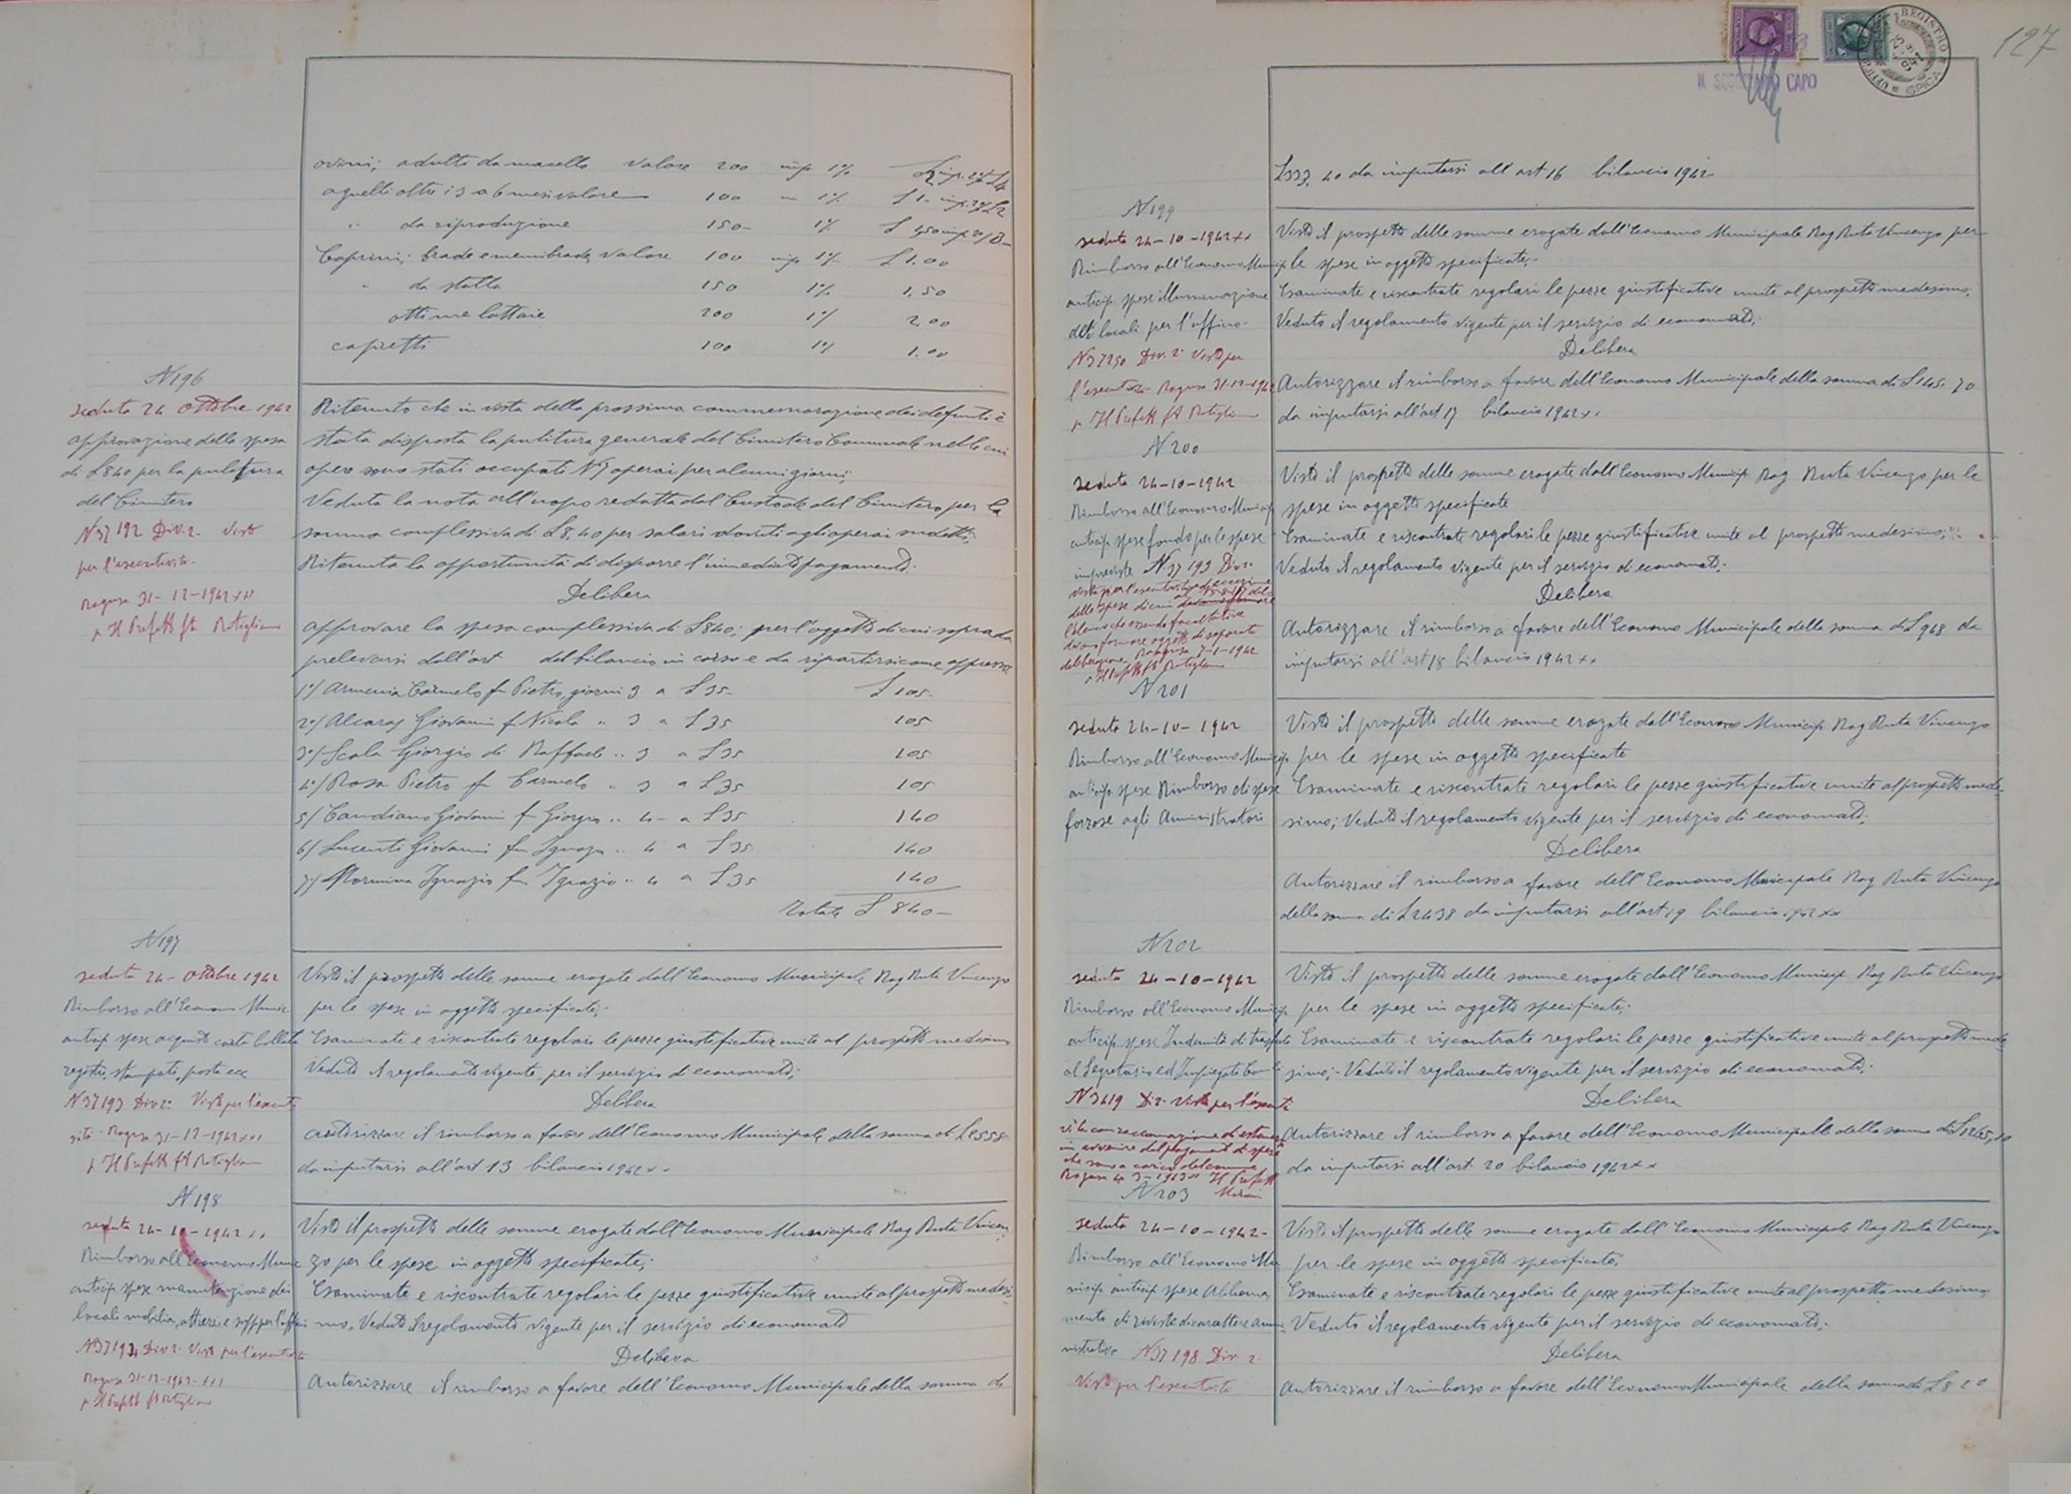 ovini; adulti da macello valore 200 imp 1%
agnelli oltre i 3 a 6 mesi valore 100 1% £ 1
" da riproduzione 150 1% £ 1,50
Caprini; brade e membrade valore 100 imp 1% £ 1.00
" da stalla 150 1% 1,50
ottime lattaie 200 1% 2,00
capretti 100 1% 1.00
N 196
seduta 24 ottobre 1942
approvazione della spesa
di £ 840 per la pulitura
del Cimitero
N 37192 Div. 2. Visto
per l'esecutività
Ragusa 31-12-1942 XXI
p Il Prefetto ft Rotigliano
Ritenuto che in vista della prossima commemorazione dei defunti è
stata disposta la pulitura generale del Cimitero Comunale nelle cui
opere sono stati occupati N 7 operai per alcuni giorni;
Veduta la nota all'uopo redatta dal Custode del Cimitero per la
somma complessiva di £ 8,40 per salari dovuti agli operai suddetti;
Ritenuta la opportunità di disporre l'immediato pagamento.
Delibera
approvare la spesa complessiva di £ 840; per l'oggetto di cui sopra da
prelevarsi dall'art del bilancio in corso e da ripartirsi come appresso
1°/ Armenia Carmelo fu Pietro, giorni 3 a £ 35- £ 105-
2°/ Alcaras Giovanni f Nicola " 3 a £ 35 105
3°/ Scala Giorgio di Raffaele " 3 a £ 35 105
4°/ Rosa Pietro f Carmelo " 3 a £ 35 105
5/ Candiano Giovanni f Giorgio " 4 - a £ 35 140
6/ Lucenti Giovanni fu Ignazio " 4 a £ 35 140
7/ Mormina Ignazio fu Ignazio " 4 a £ 35 140
Totale £ 840-
N 197
seduta 24- ottobre 1942
Rimborso all'Economo Munic
anticip spese acquisto carta bollata
registri, stampati, posta ecc
N 37193 Div 2: Visto per l'esecuti
vità - Ragusa 31-12-1942 XXI
p Il Prefetto ft Rotigliano
Visto il prospetto delle somme erogate dall'Economo Municipale Rag Ruta Vincenzo
per le spese in oggetto specificate;-
Esaminate e riscontrate regolari le pezze giustificative unite al prospetto medesimo
Veduto il regolamento vigente per il servizio di economato;
Delibera
autorizzare il rimborso a favore dell'Economo Municipale della somma di £ 2558
da imputarsi all'art 13 bilancio 1942 XX
N 198
seduta 24-10-1942 XX
Rimborso all'Economo Munic
anticip spese manutenzione dei
locali mobilia, attrezzi e supp per l'uffici
N 37194 Div 2. Visto per l'esecutività
Ragusa 31-12-1942-XXI
p Il Prefetto ft Rotigliano
Visto il prospetto delle somme erogate dall'Economo Municipale Rag Ruta Vincen
zo per le spese in oggetto specificate;
Esaminate e riscontrate regolari le pezze giustificative unite al prospetto medesi
mo, Veduto il regolamento vigente per il servizio di economato
Delibera
Autorizzare il rimborso a favore dell'Economo Municipale della somma di
127
IL SEGRETARIO CAPO
REGISTRO
ISPICA
£ 333, 40 da imputarsi all'art 16 bilancio 1942
N 199
seduta 24-10-1942 XX
Rimborso all'Economo Municip
anticip. spese illuminazione
dei locali per l'ufficio-
N 37290 Div. 2. Visto per
l'esecutività Ragusa 31-12-1942
p Il Prefetto ft Rotigliano
Visto il prospetto delle somme erogate dall'Economo Municipale Rag Ruta Vincenzo per
le spese in oggetto specificate;-
Esaminate e riscontrate regolari le pezze giustificative unite al prospetto medesimo,
Veduto il regolamento vigente per il servizio di economato;
Delibera
Autorizzare il rimborso a favore dell'Economo Municipale della somma di £ 145. 70
da imputarsi all'art 17 bilancio 1942 XX
N 200
seduta 24-10-1942
Rimborso all'Economo Municip
anticip spese fondo per le spese
impreviste N 37193 Div 2.
deliberazione Ragusa 7-1-1942
p Il Prefetto ft Rotigliano
Visto il prospetto delle somme erogate dall'Economo Municip Rag Ruta Vincenzo per le
spese in oggetto specificate
Esaminate e riscontrate regolari le pezze giustificative unite al prospetto medesimo;
Veduto il regolamento vigente per il servizio di economato;
Delibera
Autorizzare il rimborso a favore dell'Economo Municipale della somma di £ 968 da
imputarsi all'art 18 bilancio 1942 XX
N 201
seduta 24-10-1942
Rimborso all'Economo Municip
anticip. spese Rimborso di spese
forzose agli Amministratori
Visto il prospetto delle somme erogate dall'Economo Municip Rag Ruta Vincenzo
per le spese in oggetto specificate
Esaminate e riscontrate regolari le pezze giustificative unite al prospetto mede-
simo; Veduto il regolamento vigente per il servizio di economato;
Delibera
Autorizzare il rimborso a favore dell'Economo Municipale Rag Ruta Vincenzo
della somma di £ 2438 da imputarsi all'art 19 bilancio 1942 XX
N 202
seduta 24-10-1942
Rimborso all'Economo Municip
anticip. spese Indennità di trasferte
al Segretario ed Impiegati Com
N 3619 Div. Visto per l'esecuti
vità con raccomandazione di astenersi
in avvenire dal pagamento di spese
che sono a carico del comune
Ragusa 4-3-1943 XXI Il Prefetto
Visto il prospetto delle somme erogate dall'Economo Municip Rag Ruta Vincenzo
per le spese in oggetto specificate;-
Esaminate e riscontrate regolari le pezze giustificative unite al prospetto mede-
simo;- Veduto il regolamento vigente per il servizio di economato;
Delibera
Autorizzare il rimborso a favore dell'Economo Municipale della somma di £ 1265,10
da imputarsi all'art. 20 bilancio 1942 XX
N 203
seduta 24-10-1942-
Rimborso all'Economo Mu
nicip. anticip spese Abbona
mento di riviste di carattere ammi
nistrativo N 37198 Div 2.
Visto per l'esecutività
Visto il prospetto delle somme erogate dall'Economo Municipale Rag Ruta Vincenzo
per le spese in oggetto specificate;
Esaminate e riscontrate regolari le pezze giustificative unite al prospetto medesimo
Veduto il regolamento vigente per il servizio di economato;-
Delibera
Autorizzare il rimborso a favore dell'Economo Municipale della somma di £ 820